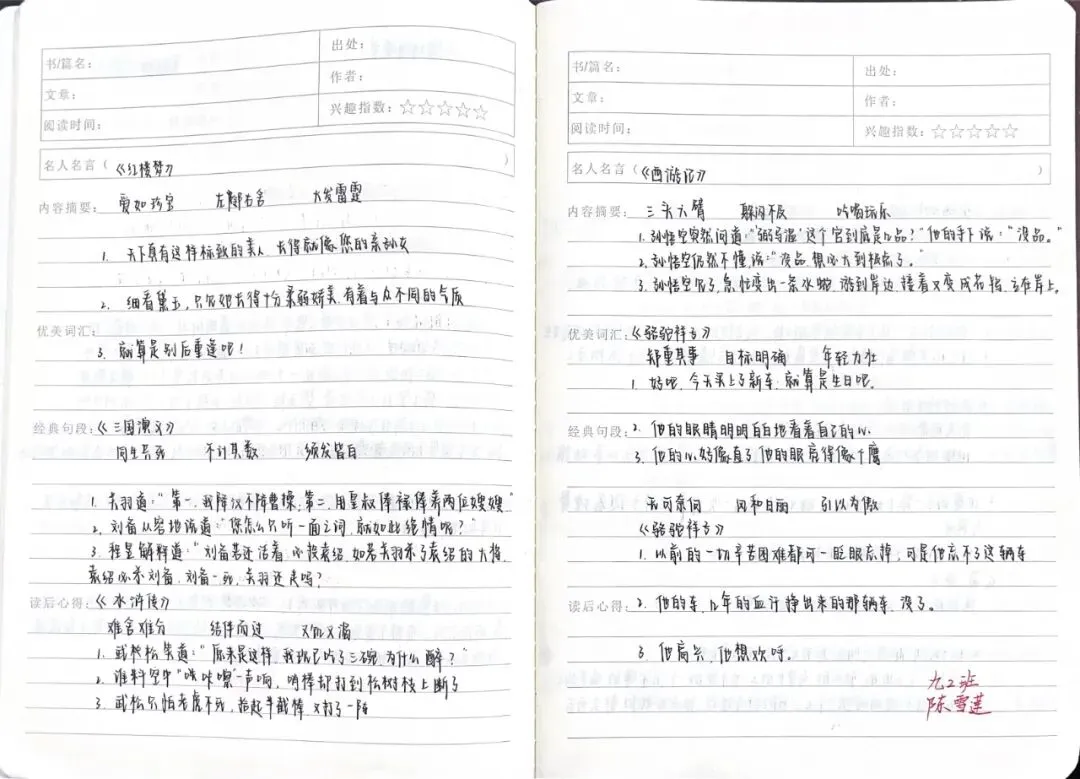 书/篇名：
出处：
文章：
作者：
阅读时间：
兴趣指数：☆☆☆☆☆
名人名言（《红楼梦》）
内容摘要： 爱如珍宝 左邻右舍 大发雷霆
1. 天下真有这样标致的美人，长得就像您的亲孙女
2. 细看黛玉，只觉她长得十分柔弱娇美，有着与众不同的气质
优美词汇：
3. 就算是别后重逢吧！
经典句段：《三国演义》
同生共死 不计其数 须发皆白
1. 关羽道：“第一，我降汉不降曹操，第二，用皇叔俸禄俸养两位嫂嫂”
2. 刘备从容地说道：“您怎么只听一面之词，就如此绝情呢？”
3. 程昱解释道：“刘备若还活着，必投袁绍，如若关羽杀了袁绍的大将，
袁绍必杀刘备，刘备一死，关羽还走吗？
读后心得：《水浒传》
难舍难分 结伴而过 又饥又渴
1. 武松笑道：“原来是这样，我现已吃了三碗，为什么醉？”
2. 谁料空中“咔咔嚓”一声响，哨棒却打到松树枝上断了
3. 武松只怕老虎不死，抬起半截棒，又打了一阵
书/篇名：
出处：
文章：
作者：
阅读时间：
兴趣指数：☆☆☆☆☆
名人名言（《西游记》）
内容摘要： 三头六臂 躲闪不及 吃喝玩乐
1. 孙悟空突然问道：“弼马温”这个官到底是几品？”他的手下说：“没品。”
2. 孙悟空仍然不懂，说：“没品，想必大到极点了。”
3. 孙悟空
急忙变出一条水物，游到岸边，接着又变成花鸨，立在岸上。
优美词汇：《骆驼祥子》
郑重其事 目标明确 年轻力壮
1. 好吧，今天买上了新车，就算是生日吧。
经典句段： 2. 他的眼睛明明白白地看着自己的心
3. 他的心好像直了，他的眼亮得像个鹰
无可奈何 风和日丽 引以为傲
《骆驼祥子》
1. 以前的一切辛苦困难都可一眨眼忘掉，可是他忘不了这辆车
读后心得： 2. 他的车，几年的血汗挣出来的那辆车，没了。
3. 他高兴，他想欢呼。
九2班
陈雪莲